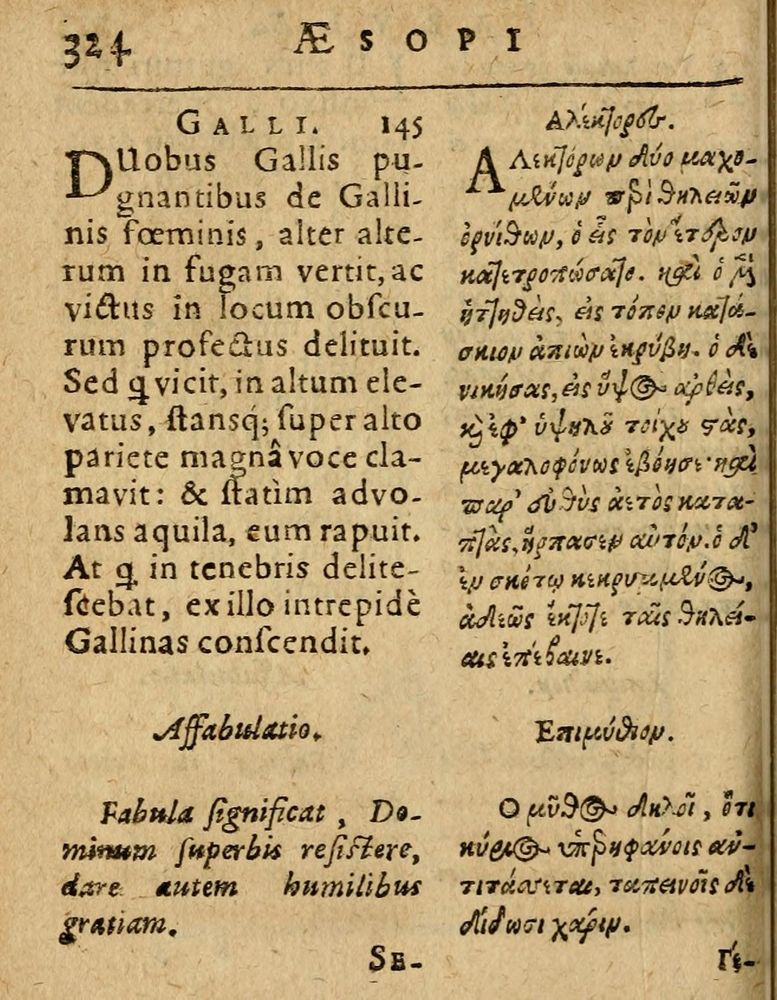 324 ÆSOPI
GALLI. 145
DUobus Gallis pu-
gnantibus de Galli-
nis fœminis, alter alte-
rum in fugam vertit, ac
victus in locum obſcu-
rum profectus delituit.
Sed q̃ vicit, in altum ele-
vatus, ſtansq́; ſuper alto
pariete magnâ voce cla-
mavit: & ſtatim advo-
lans aquila, eum rapuit.
At q̃ in tenebris delite-
ſcebat, ex illo intrepidè
Gallinas conſcendit.
Affabulatio.
Fabula ſignificat, Do-
minum ſuperbis reſiſtere,
dare autem humilibus
gratiam.
SE-
Αλέκτορες.
ΑΛεκτόρων δύο μαχο-
μένων περὶ θηλειῶν
ὀρνίθων, ὁ εἷς τὸν ἕτερον
κατετροπώσατο. καὶ ὁ μὲν
ἡττηθεὶς, εἰς τόπον κατά-
σκιον ἀπιὼν ἐκρύβη. ὁ δὲ
νικήσας, εἰς ὕψος ἀρθεὶς,
καὶ ἐφ' ὑψηλοῦ τοίχου στὰς,
μεγαλοφόνως ἐβόησε· καὶ
παρ' εὐθὺς ἀετὸς κατα-
πτὰς, ἥρπασεν αὐτόν. ὁ δ'
ἐν σκότῳ κεκρυμμένος,
ἀδεῶς ἔκτοτε ταῖς θηλεί-
αις ἐπέβαινε.
Επιμύθιον.
Ο μῦθος δηλοῖ, ὅτι
κύριος ὑπερηφάνοις ἀν-
τιτάσσεται, ταπεινοῖς δὲ
δίδωσι χάριν.
Γέ-